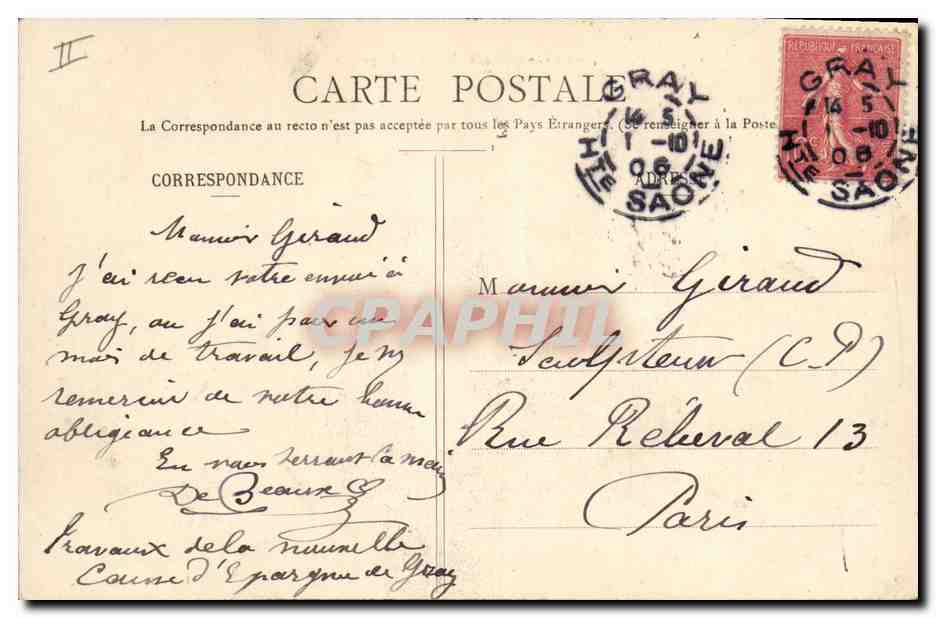 II
CARTE POSTALE
La Correspondance au recto n'est pas acceptée par tous les Pays Étrangers. (Se renseigner à la Poste
CORRESPONDANCE
ADRESSE
RÉPUBLIQUE FRANÇAISE
GRAY
14 5
1 -10
06
HTE SAÔNE
GRAY
14 5
1 -10
06
HTE SAÔNE
Monsieur Giraud
J'ai reçu votre envoi à
Gray, ou j'ai pour un
mois de travail, je vs
remercie de votre bonne
obligeance
En vous serrant la main
De Beaux
Travaux de la nouvelle
Caisse d'Epargne de Gray
Monsieur Giraud
Sculpteur (C.P)
Rue Rébeval 13
Paris
CPAPHIL